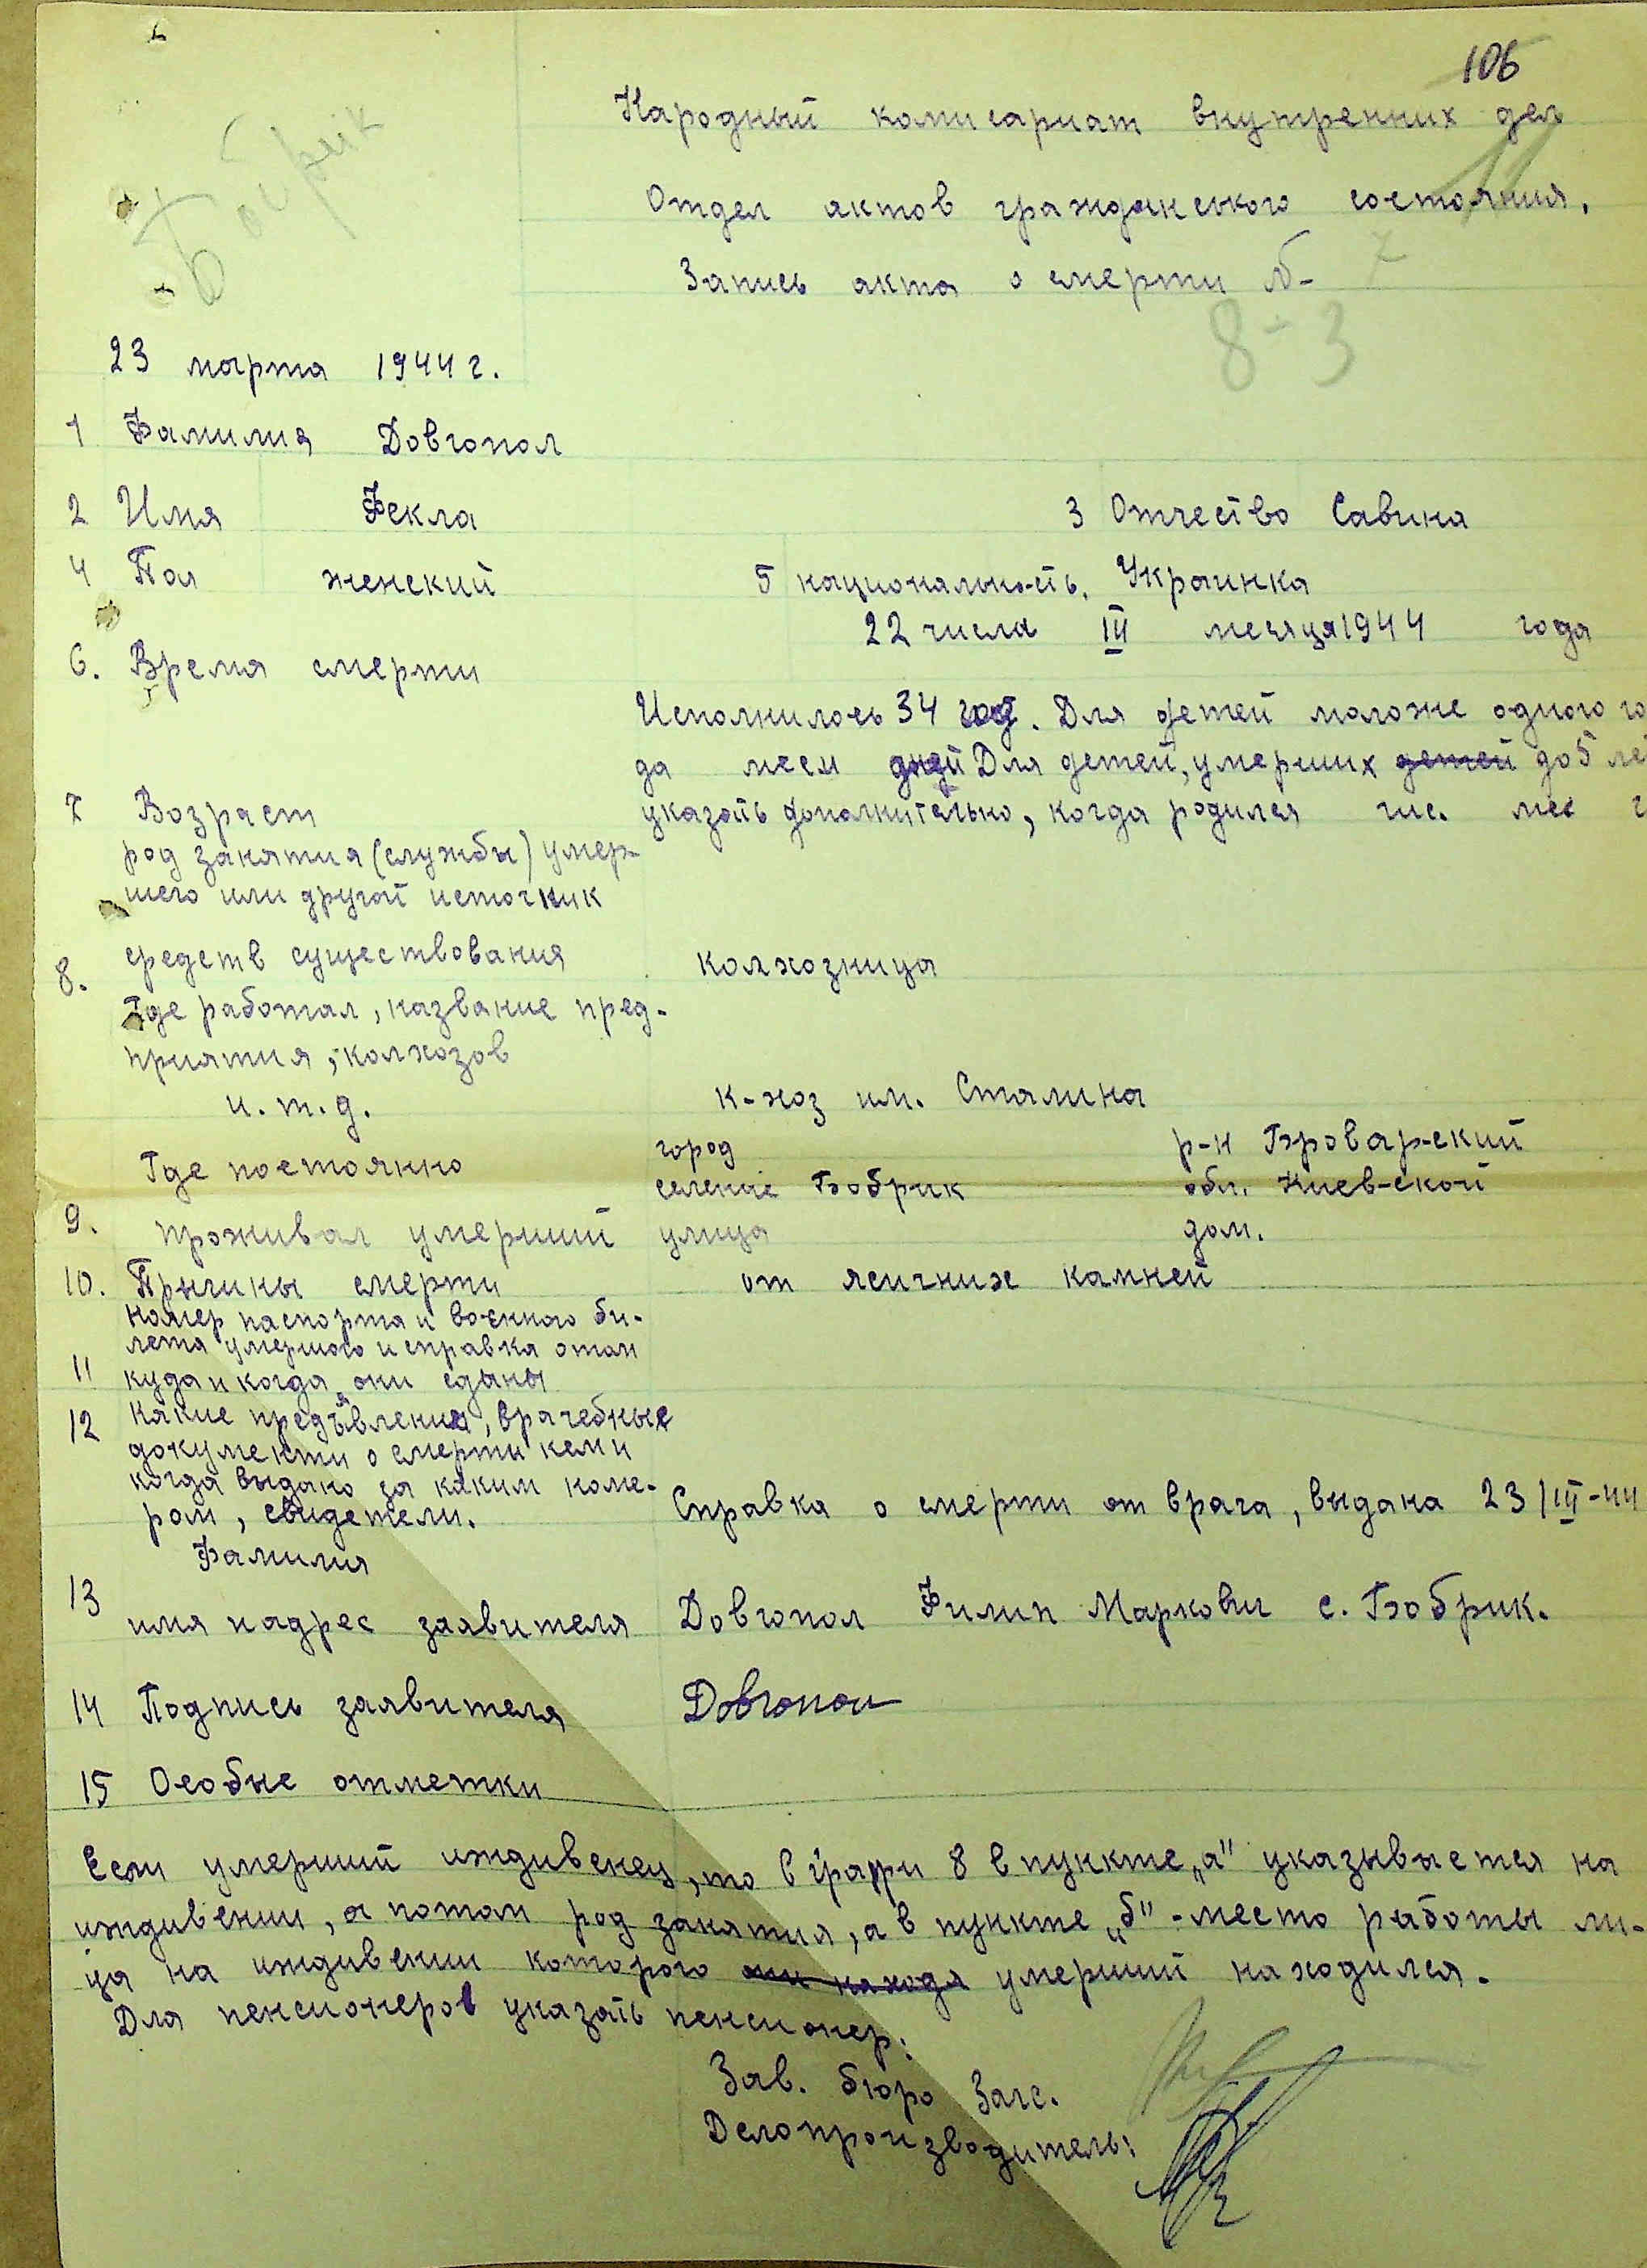 106
Бобрик
Народный комисариат внутренних дел
Отдел актов гражданського состояния.
Запись акта о смерти № 7
8-3
23 марта 1944 г.
1 Фамилия Довгопол
2 Имя Фекла 3 Отчество Савина
4 Пол женский 5 национальность. Украинка
22 числа III месяца 1944 года
6. Время смерти
Исполнилось 34 год. Для детей моложе одного го
да месяц дней Для детей, умерших детей до 5 ле
7 Возраст указать дополнительно, когда родился чис. мес г
род занятия (службы) умер-
шего или другой источник
8. средств существования колхозница
Где работал, название пред-
приятия, колхозов
и. т. д. к-хоз им. Сталина
город р-н Броварський
Где постоянно селение Бобрик обл. Киев-ской
9. проживал умерший улица дом.
10. Причины смерти от
камней
номер паспорта и военного би-
лета умершого и справка откуда
11 куда и когда они сданы
12 какие предъявления, врачебные
документи о смерти кем и
когда выдано за каким номе-
ром, свидетели. Справка о смерти от врача, выдана 23/III-44
Фамилия
13 имя и адрес заявителя Довгопол Филип Маркович с. Бобрик.
14 Подпись заявителя Довгопол
15 Особые отметки
Если умерший иждивенец, то в графи 8 в пункте „а" указывается на
иждивении, а потом род занятия, а в пункте „б" - место работы ли-
ца на иждивении которого они находя умерший находился.
Для пенсионеров указать пенсионер.
Зав. бюро Загс.
Делопроизводитель: